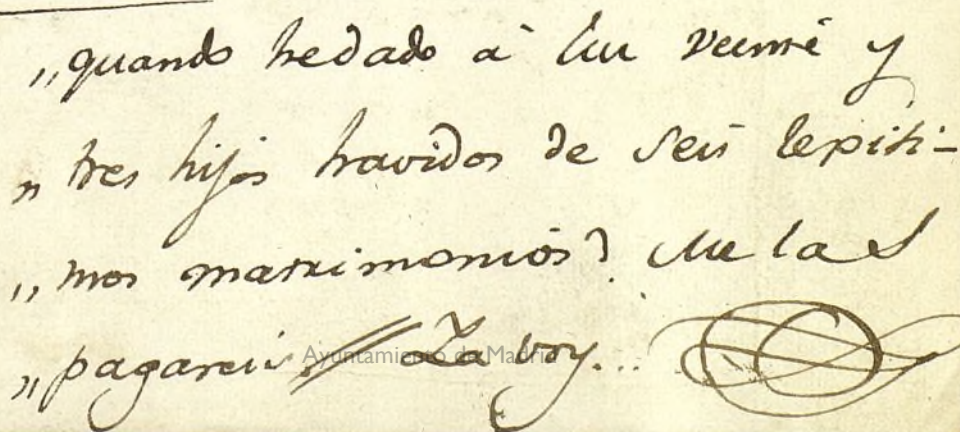 „quando hedado à luz veinte y
„tres hijos havidos de seis legiti-
„mos matrimonios? Me las
„pagareis // Ya voy...
Ayuntamiento de Madrid